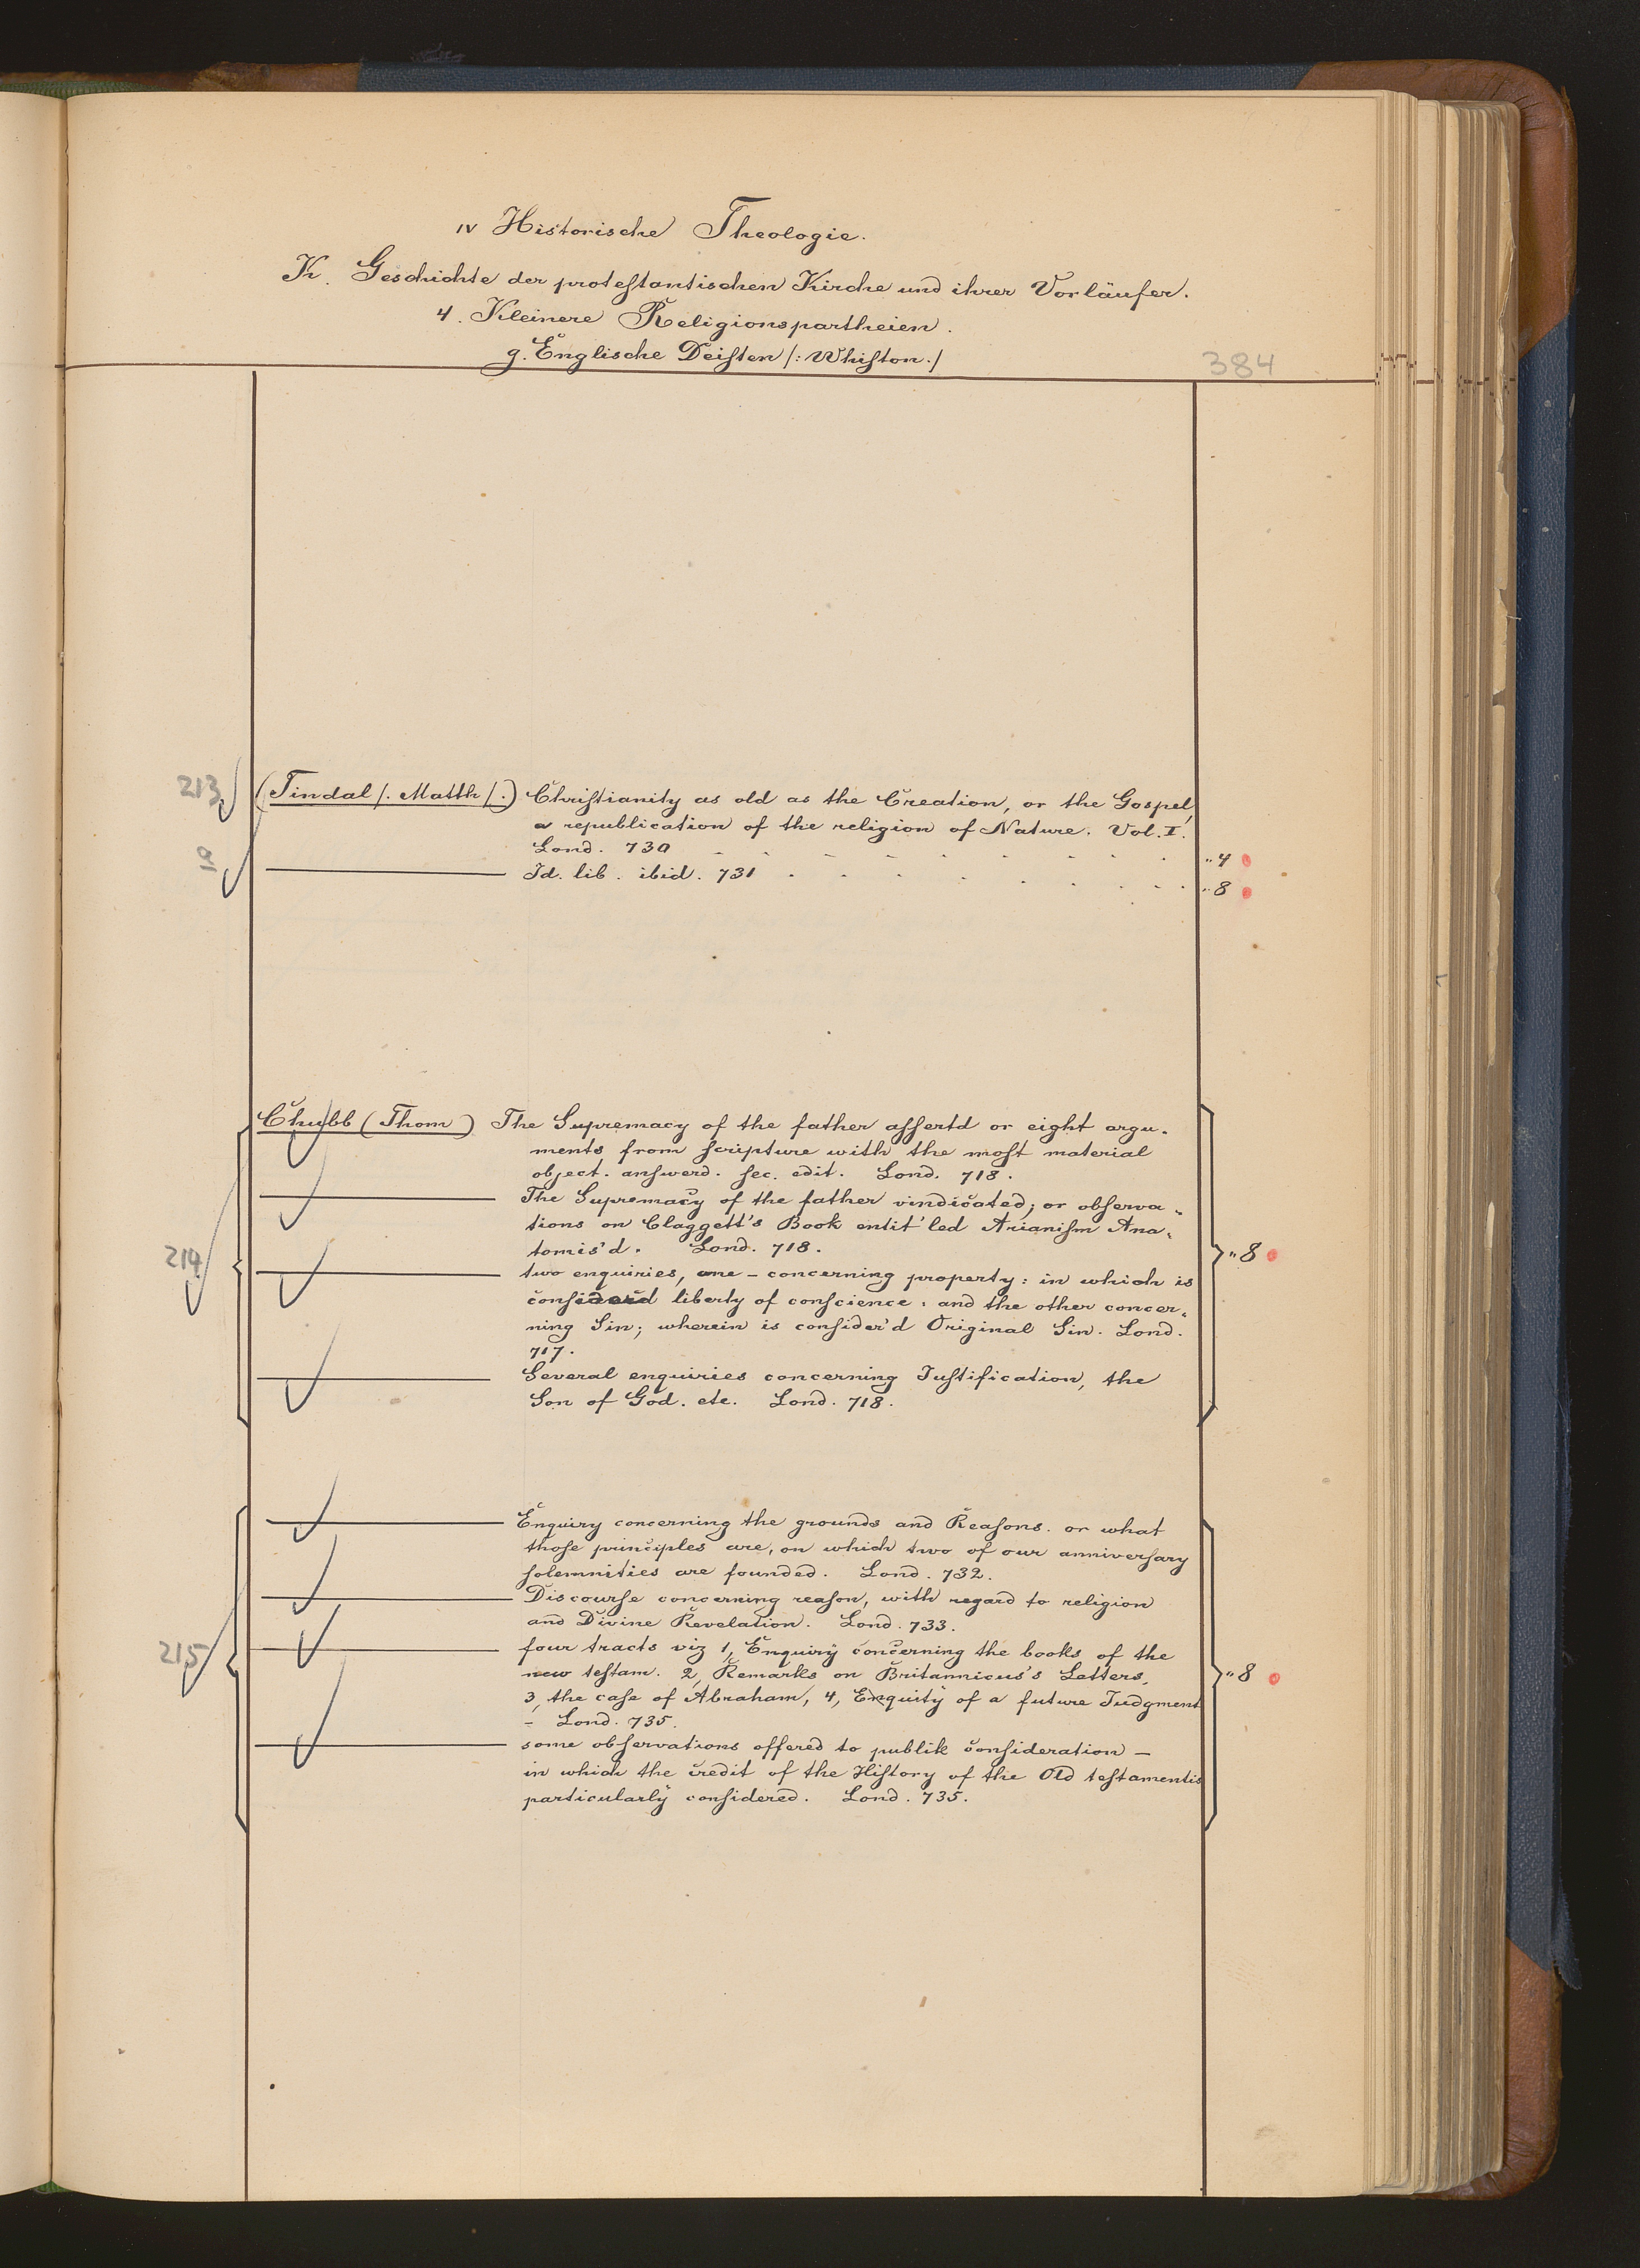 IV Historische Theologie.
K. Geschichte der protestantischen Kirche und ihrer Vorläufer.
4. Kleinere Religionspartheien.
g. Englische Deisten /: Whiston ./
384
213 (Tindal /. Matth /.) Christianity as old as the Creation, or the Gospel,
a republication of the religion of Nature. Vol. I.
Lond. 730 - - - - - - - - - „ 4
a ——— Id. lib. ibid. 731 . . . . . . . . „ 8
Chubb (Thom) The Supremacy of the father assertd or eight argu-
ments from scripture with the most material
object. answerd. sec. edit. Lond. 718.
——— The Supremacy of the father vindicated; or observa-
tions on Claggett's Book entit'led Arianism Ana-
214 tomis'd. Lond. 718. „ 8
——— two enquiries, one - concerning property: in which is
considerd liberty of conscience: and the other concer-
ning Sin; wherein is consider'd Original Sin. Lond.
717.
——— Several enquiries concerning Justification, the
Son of God. etc. Lond. 718.
——— Enquiry concerning the grounds and Reasons. or what
those principles are, on which two of our anniversary
solemnities are founded. Lond. 732.
——— Discourse concerning reason, with regard to religion
and Divine Revelation. Lond. 733.
215 ——— four tracts viz 1, Enquiry concerning the books of the
new testam. 2, Remarks on Britannicus's Letters, „ 8
3, the case of Abraham, 4, Enquity of a future Judgment
- Lond. 735.
——— some observations offered to publik consideration -
in which the credit of the History of the Old testamentis
particularly considered. Lond. 735.